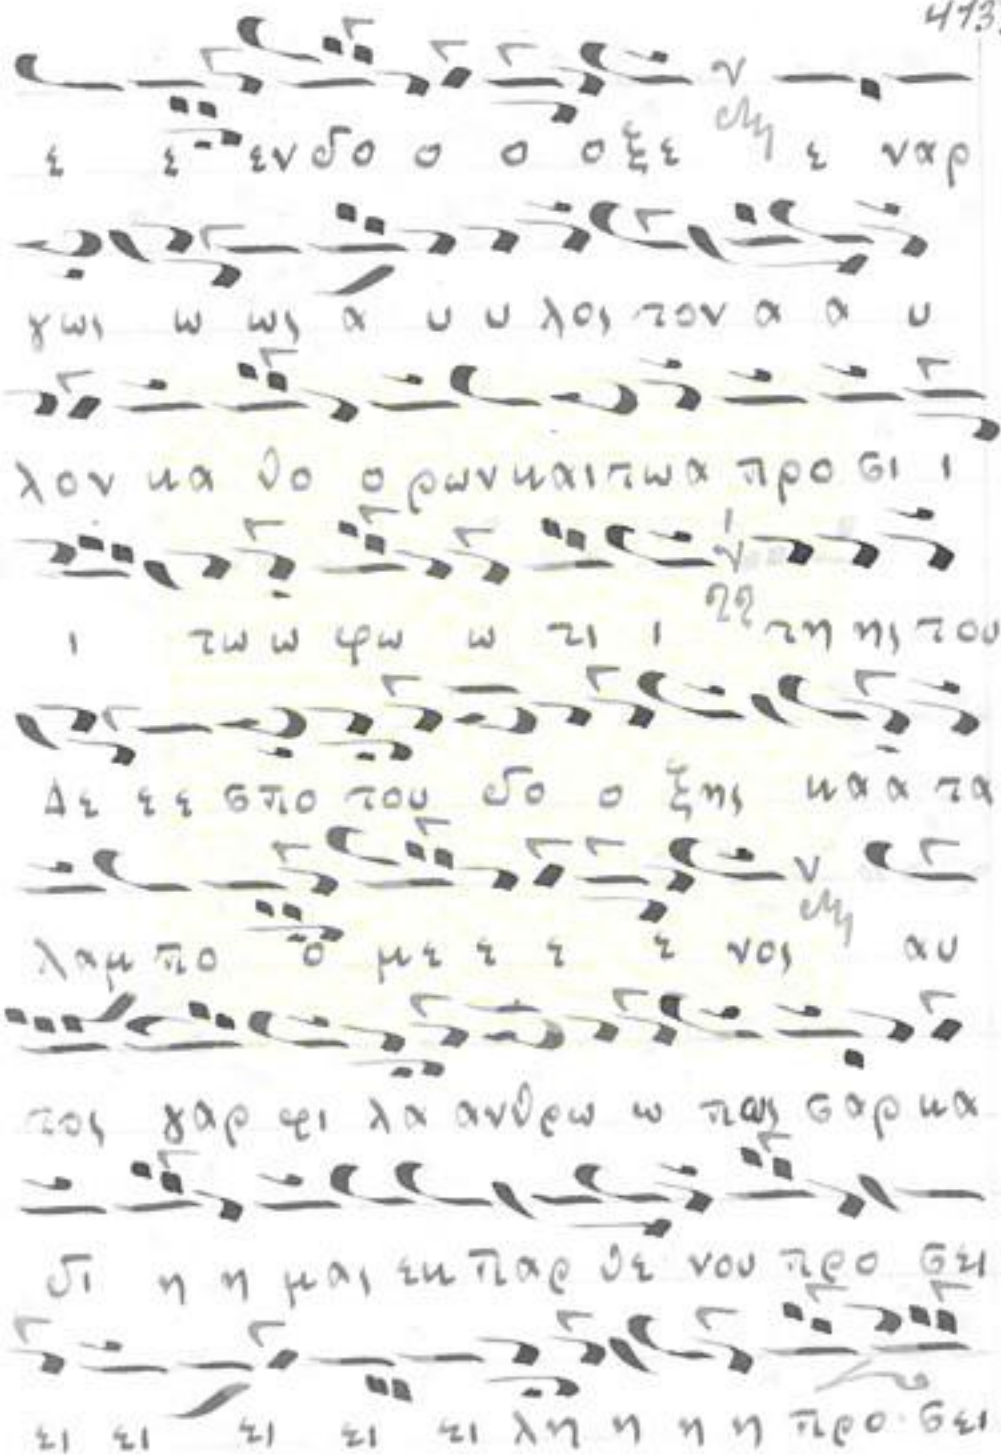 413
ε ε ενδο ο ο οξε ε ναρ
γως ω ως α υ υ λος τον α α υ
λον κα θο ο ρων και τω α προ σι ι
ι τω ω φω ω τι ι τη ης του
Δε ε ε σπο του δο ο ξης κα α τα
λαμ πο ο με ε ε ε νος αυ
τος γαρ φι λα ανθρω ω πως σαρ κα
δι η η μας εκ Παρ θε νου προ σει
ει ει ει ει ει λη η η η προ σει